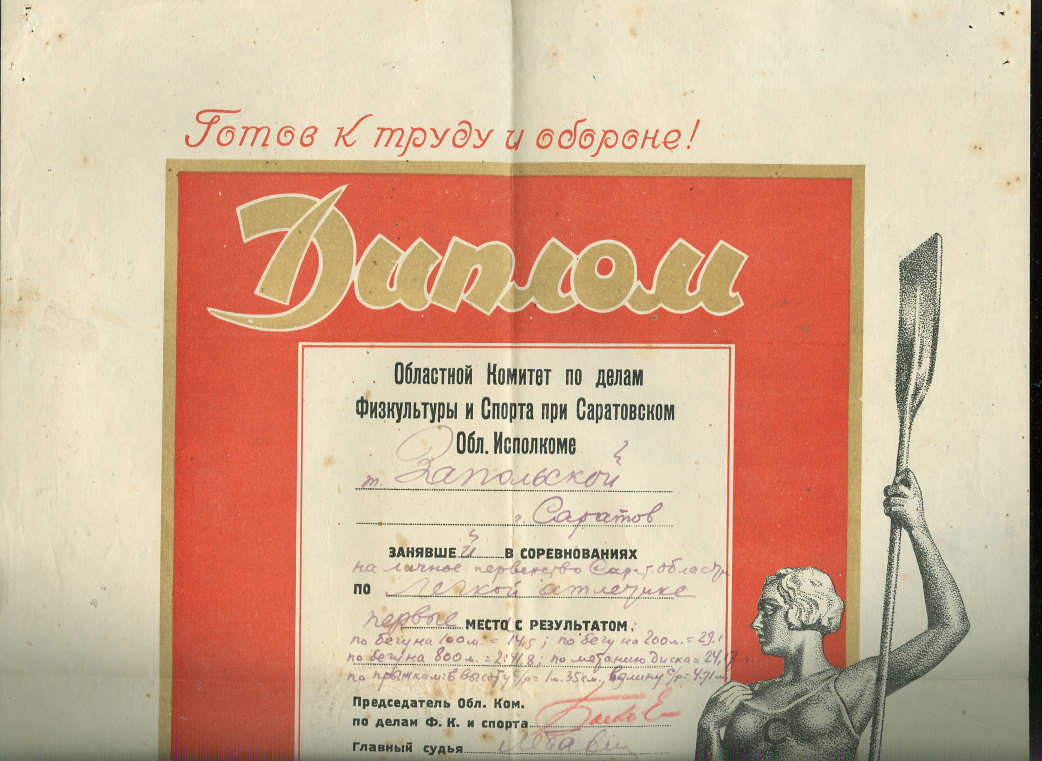 Готов к труду и обороне!
Диплом
Областной Комитет по делам
Физкультуры и Спорта при Саратовском
Обл. Исполкоме
т. Запольской
г. Саратов
ЗАНЯВШЕЙ В СОРЕВНОВАНИЯХ
на личное первенство Сарат. области
по легкой атлетике
первые МЕСТО С РЕЗУЛЬТАТОМ:
по бегу на 100 м. = 14,5; по бегу на 200 м. = 29.1
по бегу на 800 м. = 2:41,8; по метанию диска = 24,17 м.
по прыжкам в высоту с/р = 1 м. 35 см., в длину с/р = 4.71 м.
Председатель Обл. Ком.
по делам Ф. К. и спорта
Главный судья
С